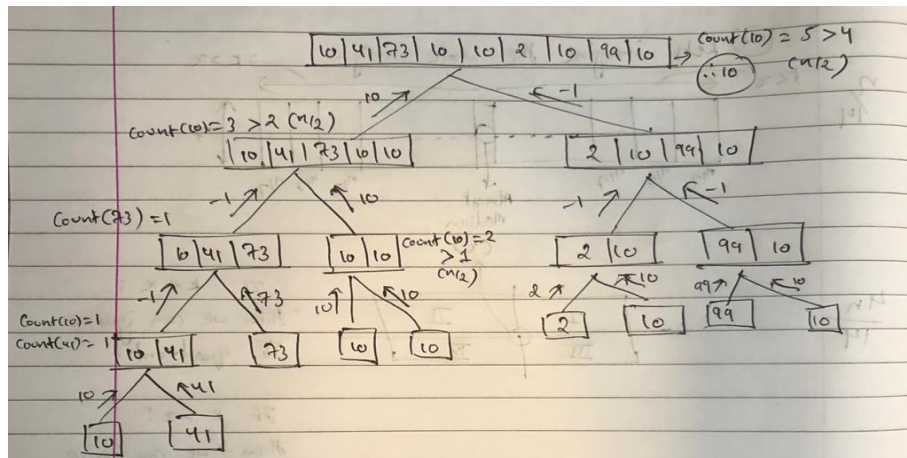 10 | 41 | 73 | 10 | 10 | 2 | 10 | 99 | 10 → count(10) = 5 > 4
∴ 10 (n/2)
10 → ← -1
count(10) = 3 > 2 (n/2)
10 | 41 | 73 | 10 | 10 2 | 10 | 99 | 10
-1 10 -1 -1
Count(73) = 1
10 | 41 | 73 10 | 10 count(10) = 2 2 | 10 99 | 10
> 1
(n/2)
-1 73 10 10 2 10 99 10
Count(10) = 1
Count(41) = 1 10 | 41 73 10 10 2 10 99 10
10 41
10 41